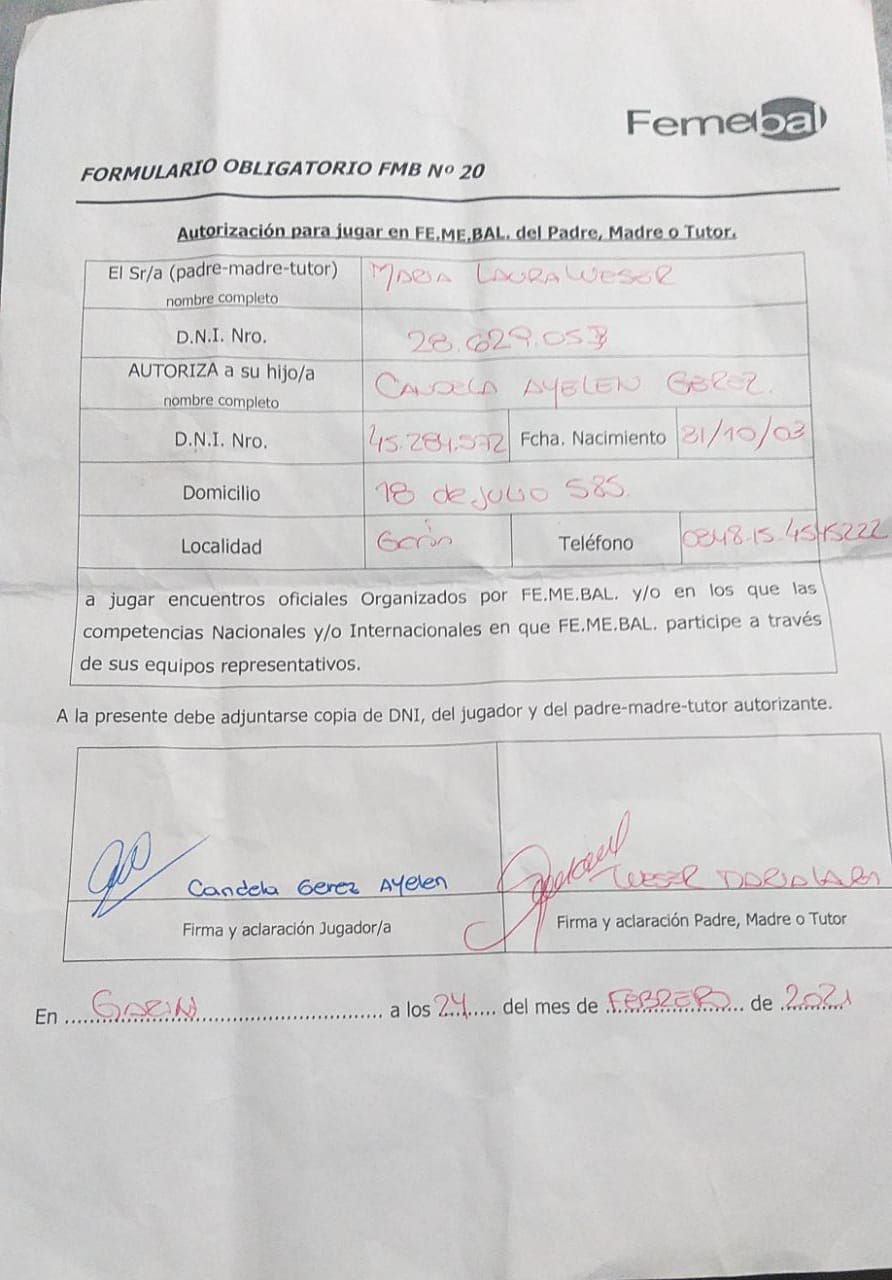 Femebal
FORMULARIO OBLIGATORIO FMB Nº 20
Autorización para jugar en FE.ME.BAL. del Padre, Madre o Tutor.
El Sr/a (padre-madre-tutor) MARIA LAURA WESER
nombre completo
D.N.I. Nro. 28.629.053
AUTORIZA a su hijo/a CANDELA AYELEN GEREZ.
nombre completo
D.N.I. Nro. 45.284.572 Fcha. Nacimiento 31/10/03
Domicilio 18 de Julio 585.
Localidad Garín Teléfono 0348.15.4545222
a jugar encuentros oficiales Organizados por FE.ME.BAL. y/o en los que las
competencias Nacionales y/o Internacionales en que FE.ME.BAL. participe a través
de sus equipos representativos.
A la presente debe adjuntarse copia de DNI, del jugador y del padre-madre-tutor autorizante.
Candela Gerez Ayelen WESER MARIA LAURA
Firma y aclaración Jugador/a Firma y aclaración Padre, Madre o Tutor
En GARIN a los 24 del mes de FEBRERO de 2021